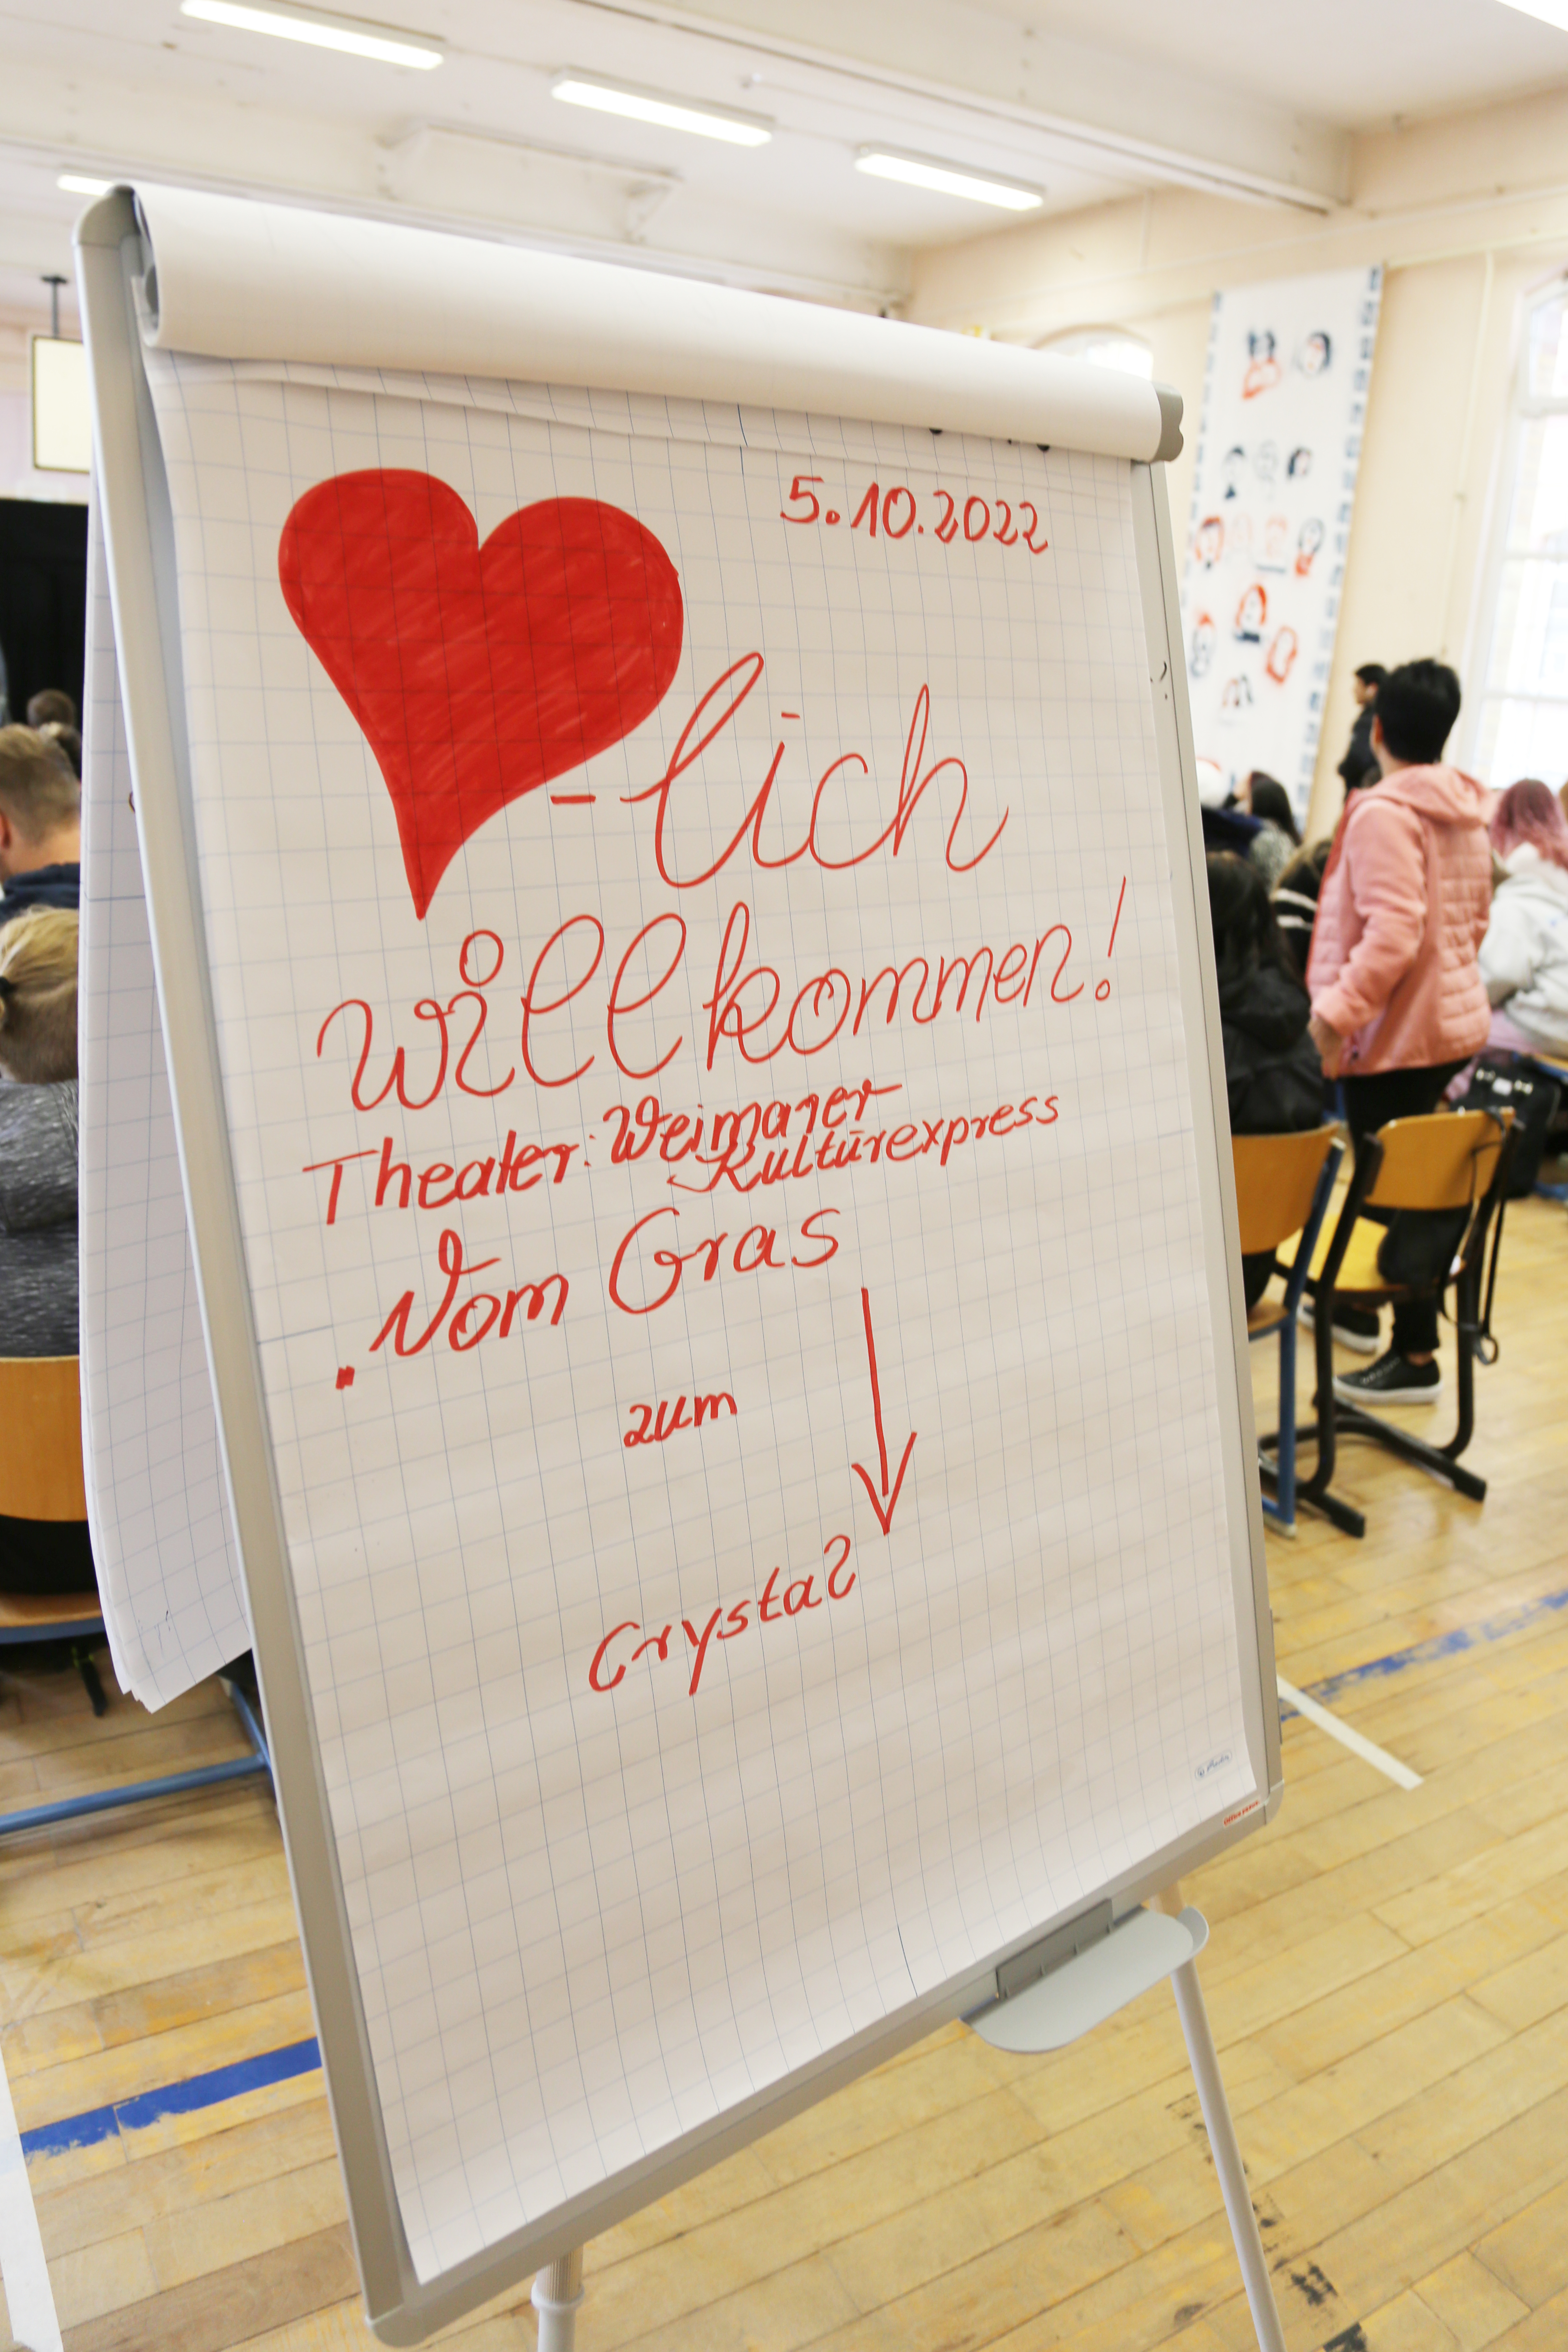 5.10.2022
-lich
willkommen!
Theater: Weimarer
Kultūrexpress
„Vom Gras
zum
Crystal